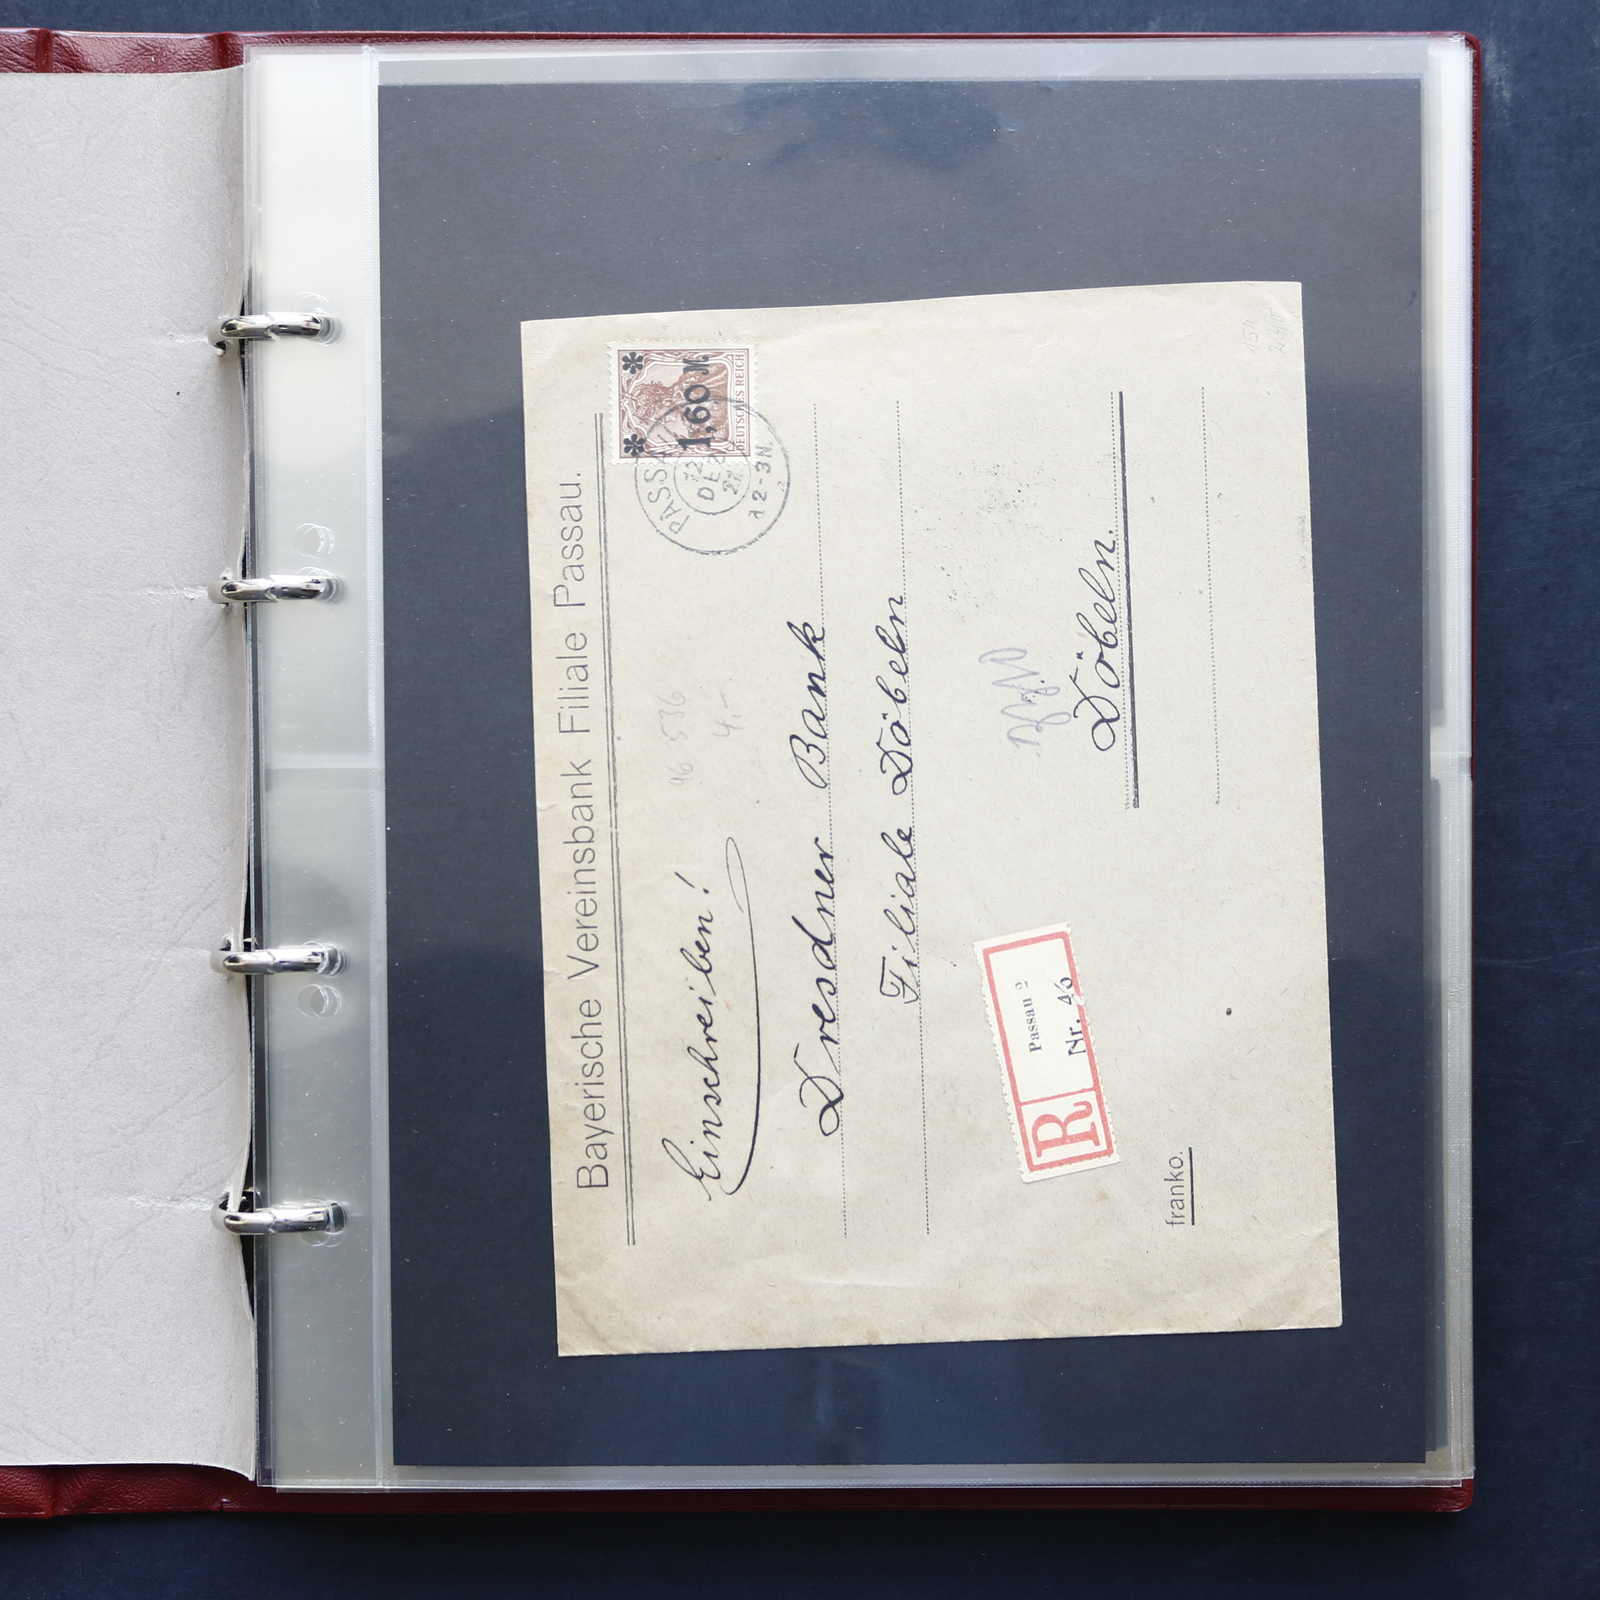 Bayerische Vereinsbank Filiale Passau.
1,60 M.
DEUTSCHES REICH
PASSA
12
DEZ
21
2-3N
Einschreiben!
46 536
4,-
Dresdner Bank
Filiale Döbeln
Döbeln.
R
Passau 2
Nr. 46
franko.
154